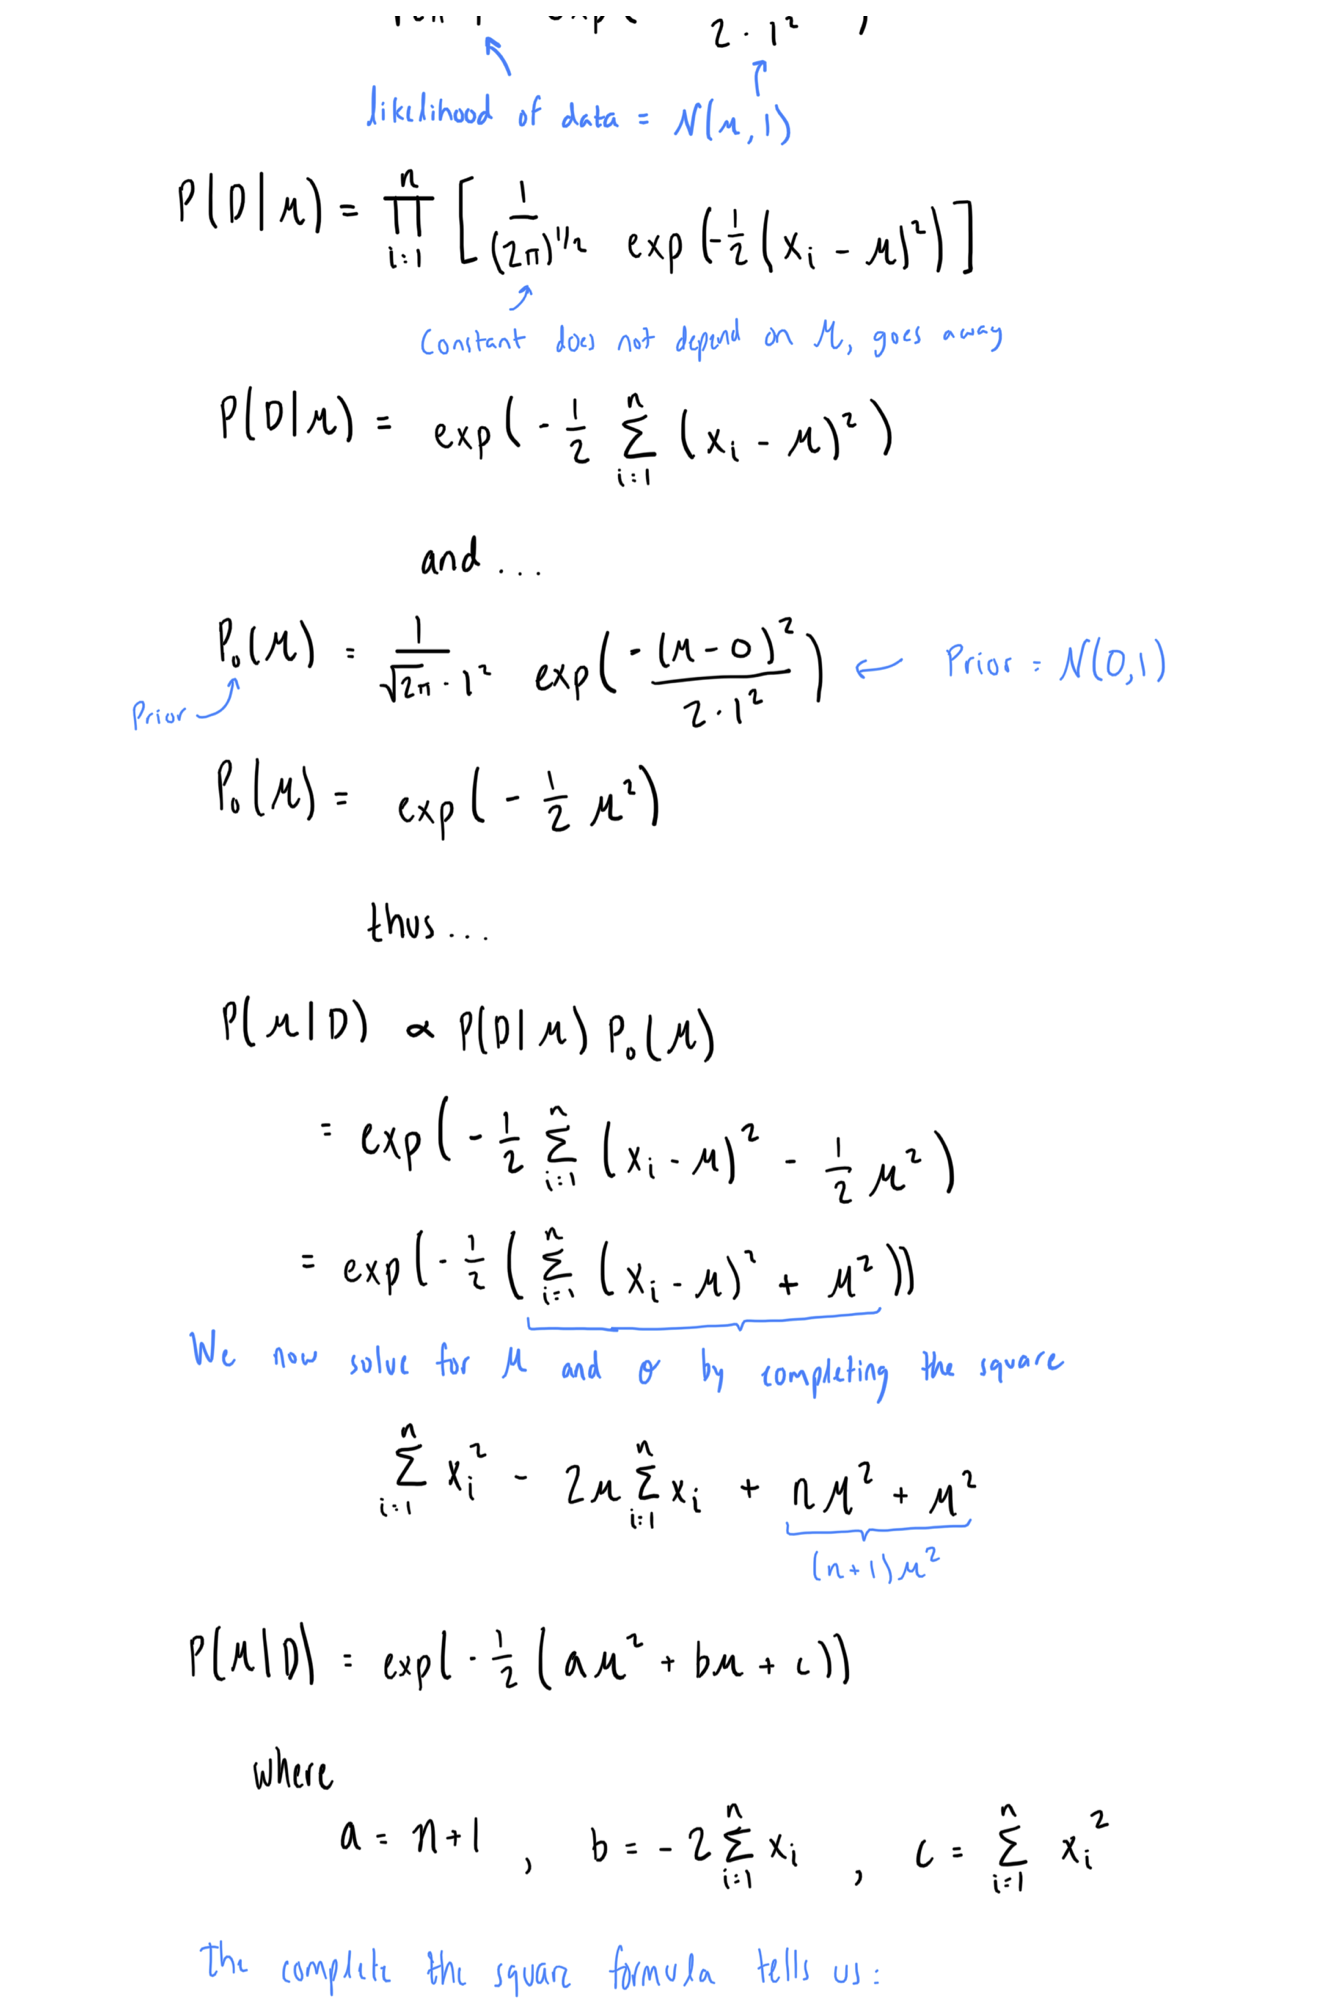 2 · 1²
likelihood of data = N(μ, 1)
P(D|μ) = ∏_{i=1}^{n} [ 1/(2π)^{1/2} exp(-1/2 (x_i - μ)²) ]
Constant does not depend on μ, goes away
P(D|μ) = exp( - 1/2 ∑_{i=1}^{n} (x_i - μ)² )
and ...
P₀(μ) = 1/(√2π · 1²) exp( -(μ - 0)² / (2 · 1²) ) ← Prior = N(0,1)
Prior
P₀(μ) = exp( - 1/2 μ² )
thus ...
P(μ|D) ∝ P(D|μ) P₀(μ)
= exp( - 1/2 ∑_{i=1}^{n} (x_i - μ)² - 1/2 μ² )
= exp( - 1/2 ( ∑_{i=1}^{n} (x_i - μ)² + μ² ))
We now solve for μ and σ by completing the square
∑_{i=1}^{n} x_i² - 2μ ∑_{i=1}^{n} x_i + nμ² + μ²
(n+1)μ²
P(μ|D) = exp( - 1/2 ( aμ² + bμ + c ))
where
a = n+1 , b = - 2 ∑_{i=1}^{n} x_i , c = ∑_{i=1}^{n} x_i²
The complete the square formula tells us :